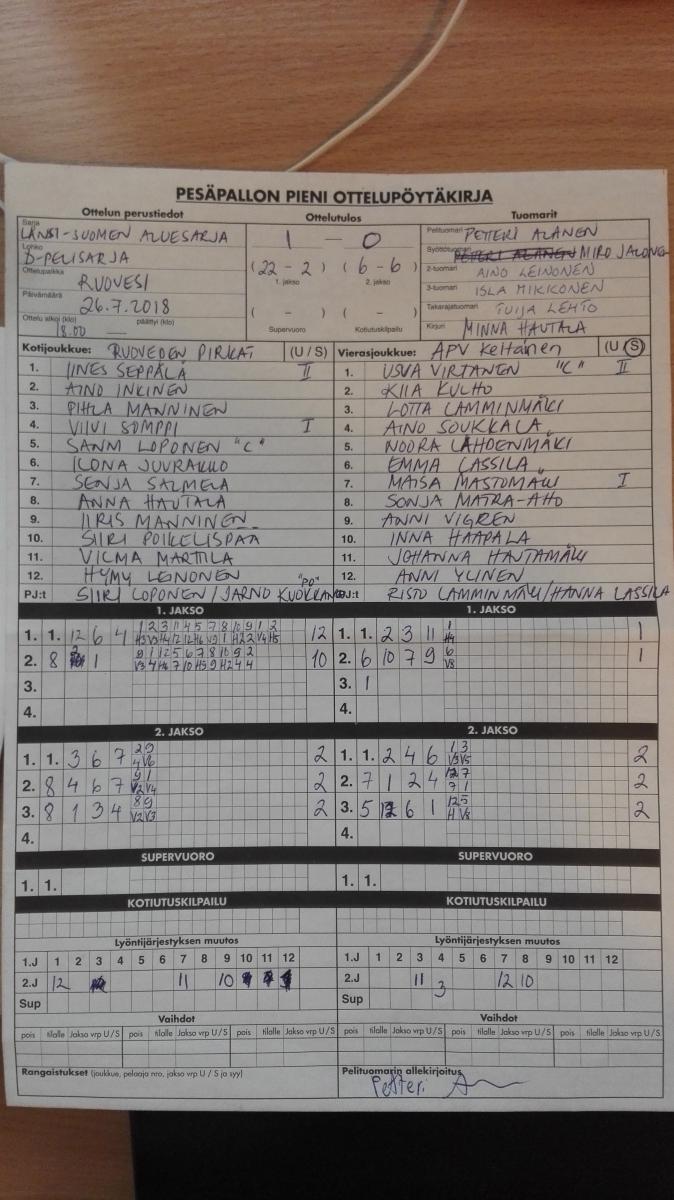 PESÄPALLON PIENI OTTELUPÖYTÄKIRJA
Ottelun perustiedot Ottelutulos Tuomarit
Sarja LÄNSI-SUOMEN ALUESARJA
Lohko D-PELISARJA
Ottelupaikka RUOVESI
Päivämäärä 26.7.2018
Ottelu alkoi (klo) 18.00 päättyi (klo)
1 - 0
(22 - 2) (6 - 6)
1. jakso 2. jakso
( - ) ( - )
Supervuoro Kotiutuskilpailu
Pelituomari PETTERI ALANEN
Syöttötuomari PETERI ALANEN MIRO JALONEN
2-tuomari AINO LEINONEN
3-tuomari ISLA MIKKONEN
Takarajatuomari TUIJA LEHTO
Kirjuri MINNA HAUTALA
Kotijoukkue: RUOVEDEN PIRKAT (U / S) Vierasjoukkue: APV Keltainen (U / S)
1. IINES SEPPÄLÄ II 1. USVA VIRTANEN "C" II
2. AINO INKINEN 2. KIIA KULHO
3. PIHLA MANNINEN 3. LOTTA LAMMINMÄKI
4. VIIVI SOMPPI I 4. AINO SOUKKALA
5. SANNI LOPONEN "C" 5. NOORA LAHDENMÄKI
6. ILONA JUURAKKO 6. EMMA LASSILA
7. SENJA SALMELA 7. MAISA MASTOMÄKI I
8. ANNA HAUTALA 8. SONJA MATRA-AHO
9. IIRIS MANNINEN 9. ANNI VIGREN
10. SIIRI POIKELISPÄÄ 10. INNA HAAPALA
11. VILMA MARTTILA 11. JOHANNA HAUTAMÄKI
12. HYMY LEINONEN 12. ANNI YLINEN
PJ:t SIIRI LOPONEN / JARNO "PO" PJ:t RISTO LAMMINMÄKI/HANNA LASSILA
1. JAKSO 1. JAKSO
1. 1. 12 6 4 1 2 3 11 4 5 7 8 10 9 1 2 12 1. 1. 2 3 11 1 H4 1
2. 8 1 9 1 12 5 6 7 8 10 9 2 10 2. 6 10 7 9 6 V8 1
3. 3. 1
4. 4.
2. JAKSO 2. JAKSO
1. 1. 3 6 7 2 9 4 V6 2 1. 1. 2 4 6 1 3 V3 V5 2
2. 8 4 6 7 9 1 V2 V4 2 2. 7 1 2 4 12 7 7 1 2
3. 8 1 3 4 8 9 V2 V3 2 3. 5 12 6 1 12 5 H V8 2
4. 4.
SUPERVUORO SUPERVUORO
1. 1. 1. 1.
KOTIUTUSKILPAILU KOTIUTUSKILPAILU
Lyöntijärjestyksen muutos Lyöntijärjestyksen muutos
1.J 1 2 3 4 5 6 7 8 9 10 11 12 1.J 1 2 3 4 5 6 7 8 9 10 11 12
2.J 12 11 10 2.J 11 3 12 10
Sup Sup
Vaihdot Vaihdot
pois tilalle Jakso vrp U/S pois tilalle Jakso vrp U/S pois tilalle Jakso vrp U/S pois tilalle Jakso vrp U/S pois tilalle Jakso vrp U/S pois tilalle Jakso vrp U/S
Rangaistukset (joukkue, pelaaja nro, jakso vrp U / S ja syy) Pelituomarin allekirjoitus
Petteri A